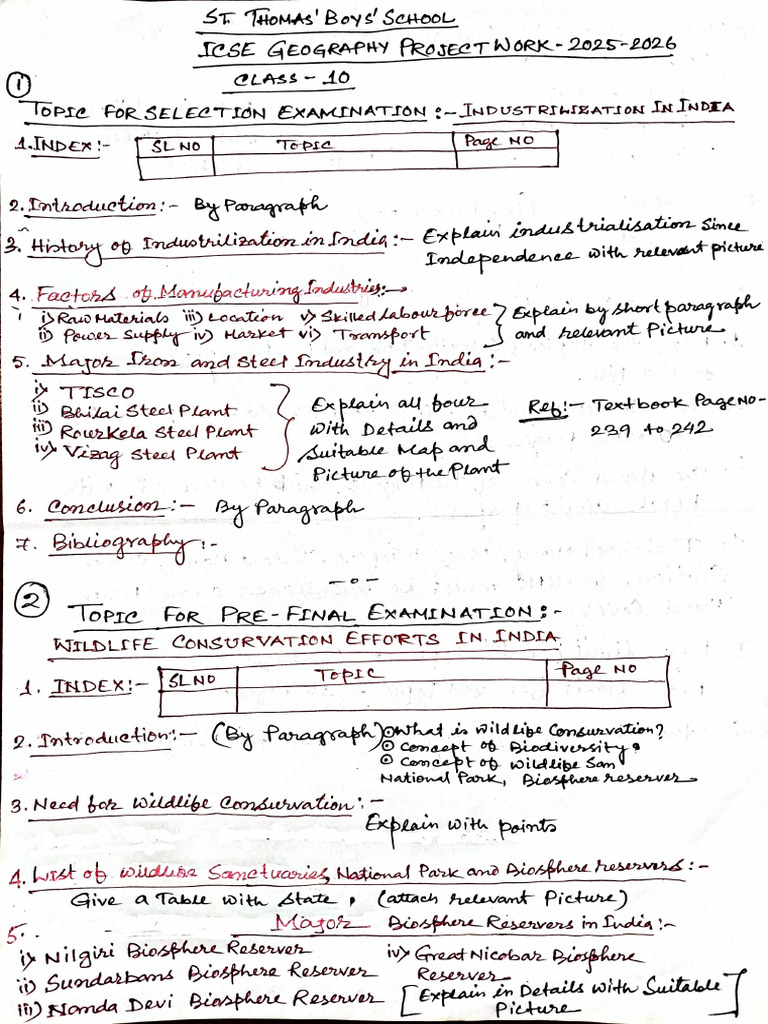 ST. THOMAS' BOYS' SCHOOL
ICSE GEOGRAPHY PROJECT WORK - 2025-2026
CLASS - 10
① TOPIC FOR SELECTION EXAMINATION :- INDUSTRILIZATION IN INDIA
1. INDEX:- SL NO TOPIC Page NO
2. Introduction :- By Paragraph
3. History of Industrilization in India :- Explain industrialisation Since
Independence with relevant picture
4. Factors of Manufacturing Industries:-
i) Raw Materials iii) Location v) Skilled labour force
ii) Power Supply iv) Market vi) Transport
Explain by short paragraph
and relevant Picture
5. Major Iron and Steel Industry in India :-
i) TISCO
ii) Bhilai Steel Plant
iii) Rourkela Steel Plant
iv) Vizag Steel Plant
Explain all four
with Details and
Suitable Map and
Picture of the Plant
Ref:- Textbook Page No-
239 to 242
6. Conclusion :- By Paragraph
7. Bibliography :-
-o-
② TOPIC FOR PRE-FINAL EXAMINATION :-
WILDLIFE CONSURVATION EFFORTS IN INDIA
1. INDEX:- SL NO TOPIC Page NO
2. Introduction :- (By Paragraph) What is Wildlife Consurvation?
Concept of Biodiversity
Concept of Wildlife San
National Park, Biosphere reserver
3. Need for Wildlife Consurvation :-
Explain with points
4. List of Wildlife Sanctuaries, National Park and Biosphere reservers :-
Give a Table with State, (attach relevant Picture)
5. Major Biosphere Reservers in India :-
i) Nilgiri Biosphere Reserver
ii) Sundarbans Biosphere Reserver
iii) Nanda Devi Biosphere Reserver
iv) Great Nicobar Biosphere
Reserver
[Explain in Details with Suitable
Picture]